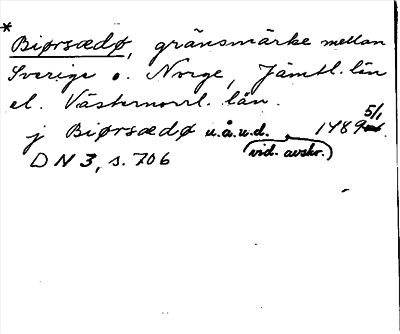 * Biørsædø, gränsmärke mellan
Sverige o. Norge, Jämtl. län
el. Västernorrl. län.
j Biørsædø u.å.u.d. 1489 5/1.
(vid. avskr.)
DN 3, s. 706